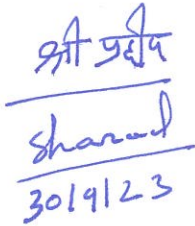 श्री प्रदीप
Sharad
30/9/23